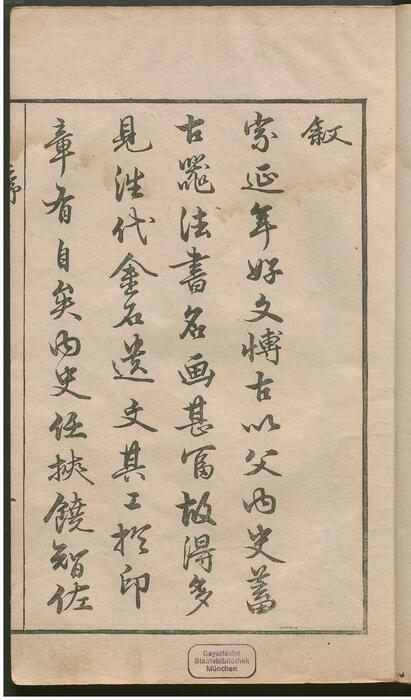 叙
索延年好文博古以父内史蓄
古器法書名画甚富故得多
見往代金石遺文其工於印
章有自矣内史任挾饒智佐
序
Bayerische
Staatsbibliothek
München